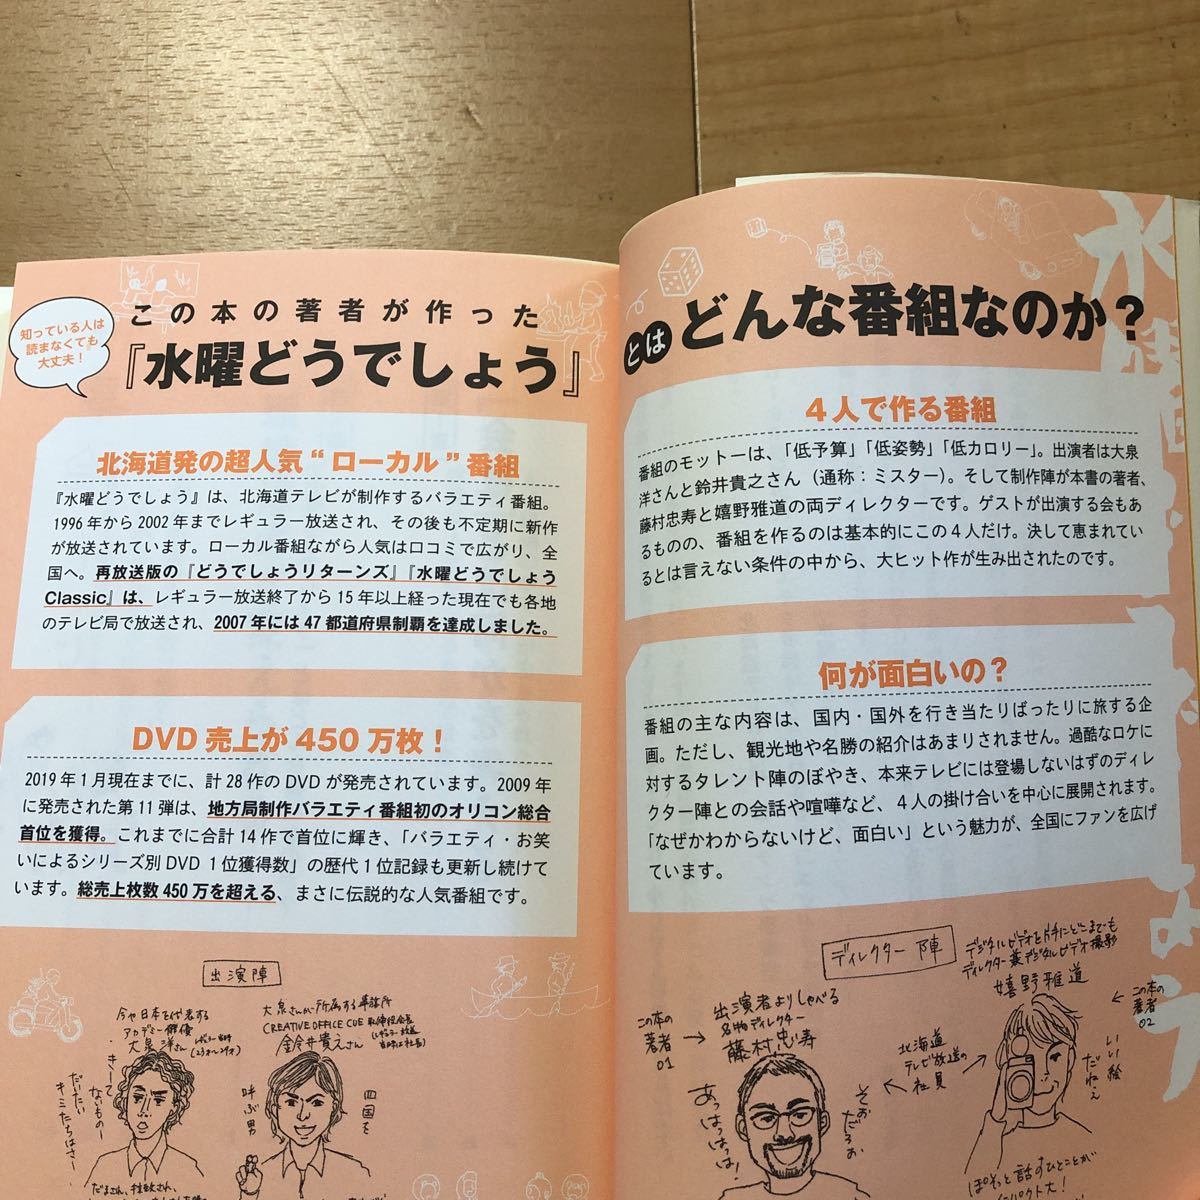 知っている人は
読まなくても
大丈夫！
この本の著者が作った
『水曜どうでしょう』
とはどんな番組なのか？
北海道発の超人気“ローカル”番組
『水曜どうでしょう』は、北海道テレビが制作するバラエティ番組。
1996年から2002年までレギュラー放送され、その後も不定期に新作
が放送されています。ローカル番組ながら人気は口コミで広がり、全
国へ。再放送版の『どうでしょうリターンズ』『水曜どうでしょう
Classic』は、レギュラー放送終了から15年以上経った現在でも各地
のテレビ局で放送され、2007年には47都道府県制覇を達成しました。
DVD売上が450万枚！
2019年1月現在までに、計28作のDVDが発売されています。2009年
に発売された第11弾は、地方局制作バラエティ番組初のオリコン総合
首位を獲得。これまでに合計14作で首位に輝き、「バラエティ・お笑
いによるシリーズ別DVD1位獲得数」の歴代1位記録も更新し続けて
います。総売上枚数450万を超える、まさに伝説的な人気番組です。
出演陣
今や日本を代表する
アカデミー俳優
大泉洋さん
きいーて
ないもの一
だいたい
キミたちはさー
大泉さんが所属する事務所
CREATIVE OFFICE CUE 取締役会長
鈴井貴之さん
四国を
呼ぶ男
4人で作る番組
番組のモットーは、「低予算」「低姿勢」「低カロリー」。出演者は大泉
洋さんと鈴井貴之さん（通称：ミスター）。そして制作陣が本書の著者、
藤村忠寿と嬉野雅道の両ディレクターです。ゲストが出演する会もあ
るものの、番組を作るのは基本的にこの4人だけ。決して恵まれてい
るとは言えない条件の中から、大ヒット作が生み出されたのです。
何が面白いの？
番組の主な内容は、国内・国外を行き当たりばったりに旅する企
画。ただし、観光地や名勝の紹介はあまりされません。過酷なロケに
対するタレント陣のぼやき、本来テレビには登場しないはずのディレ
クター陣との会話や喧嘩など、4人の掛け合いを中心に展開されます。
「なぜかわからないけど、面白い」という魅力が、全国にファンを広げ
ています。
ディレクター陣
この本の
著者
01
出演者よりしゃべる
名物ディレクター
藤村忠寿
あっはっはっは！
そおだろぉ
北海道
テレビ放送の
社員
デジタルビデオを片手にどこまでも
ディレクター兼デジタルビデオ撮影
嬉野雅道
この本の
著者
02
いい絵
だねぇ
ぼそっと話すひとことが
インパクト大！